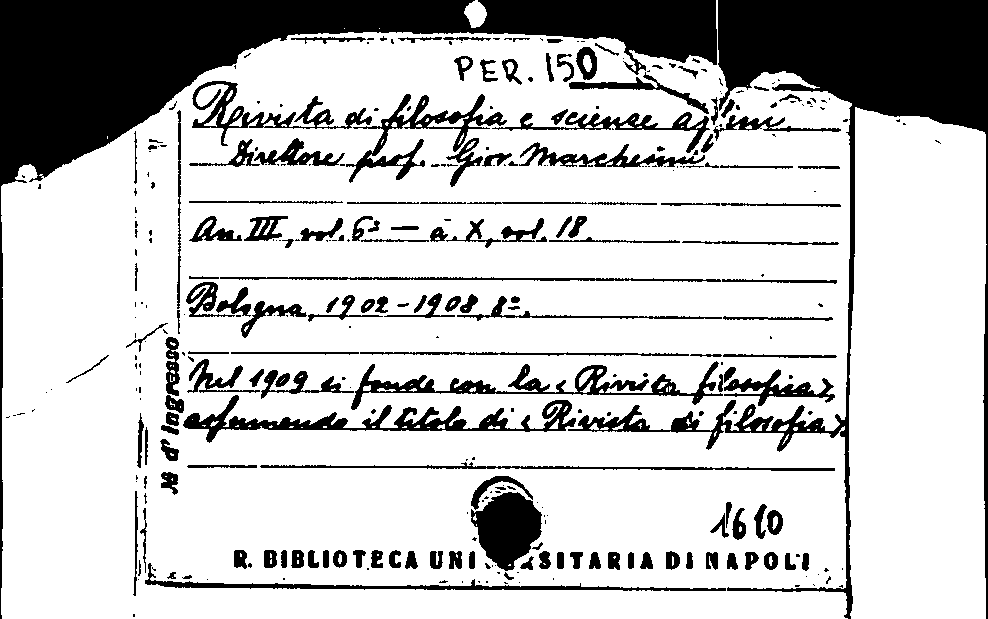 PER. 150
Rivista di filosofia e scienze affini.
Direttore prof. Giov. Marchesini.
An. III, vol. 6º — a. X, vol. 18.
Bologna, 1902-1908, 8º.
Nel 1909 si fonde con la «Rivista filosofica»,
assumendo il titolo di «Rivista di filosofia».
Nº d'Ingresso
1610
R. BIBLIOTECA UNIVERSITARIA DI NAPOLI